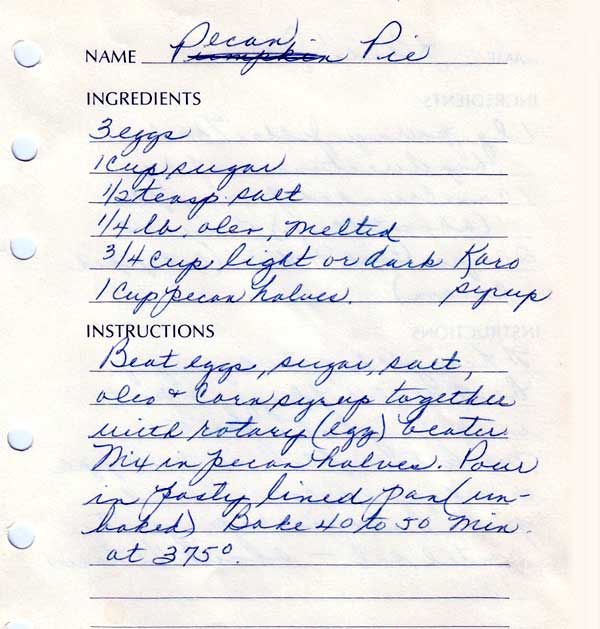 Pecan
NAME Pumpkin Pie
INGREDIENTS
3 eggs
1 cup sugar
1/2 teasp. salt
1/4 lb. oleo, melted
3/4 cup light or dark Karo
1 cup pecan halves. syrup
INSTRUCTIONS
Beat eggs, sugar, salt,
oleo + Corn syrup together
with rotary (egg) beater
Mix in pecan halves. Pour
in pasty lined pan (un-
baked) Bake 40 to 50 Min.
at 375°.